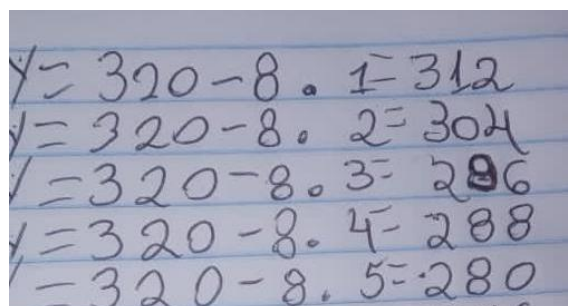 y = 320 - 8 . 1 = 312
y = 320 - 8 . 2 = 304
y = 320 - 8 . 3 = 296
y = 320 - 8 . 4 = 288
y = 320 - 8 . 5 = 280